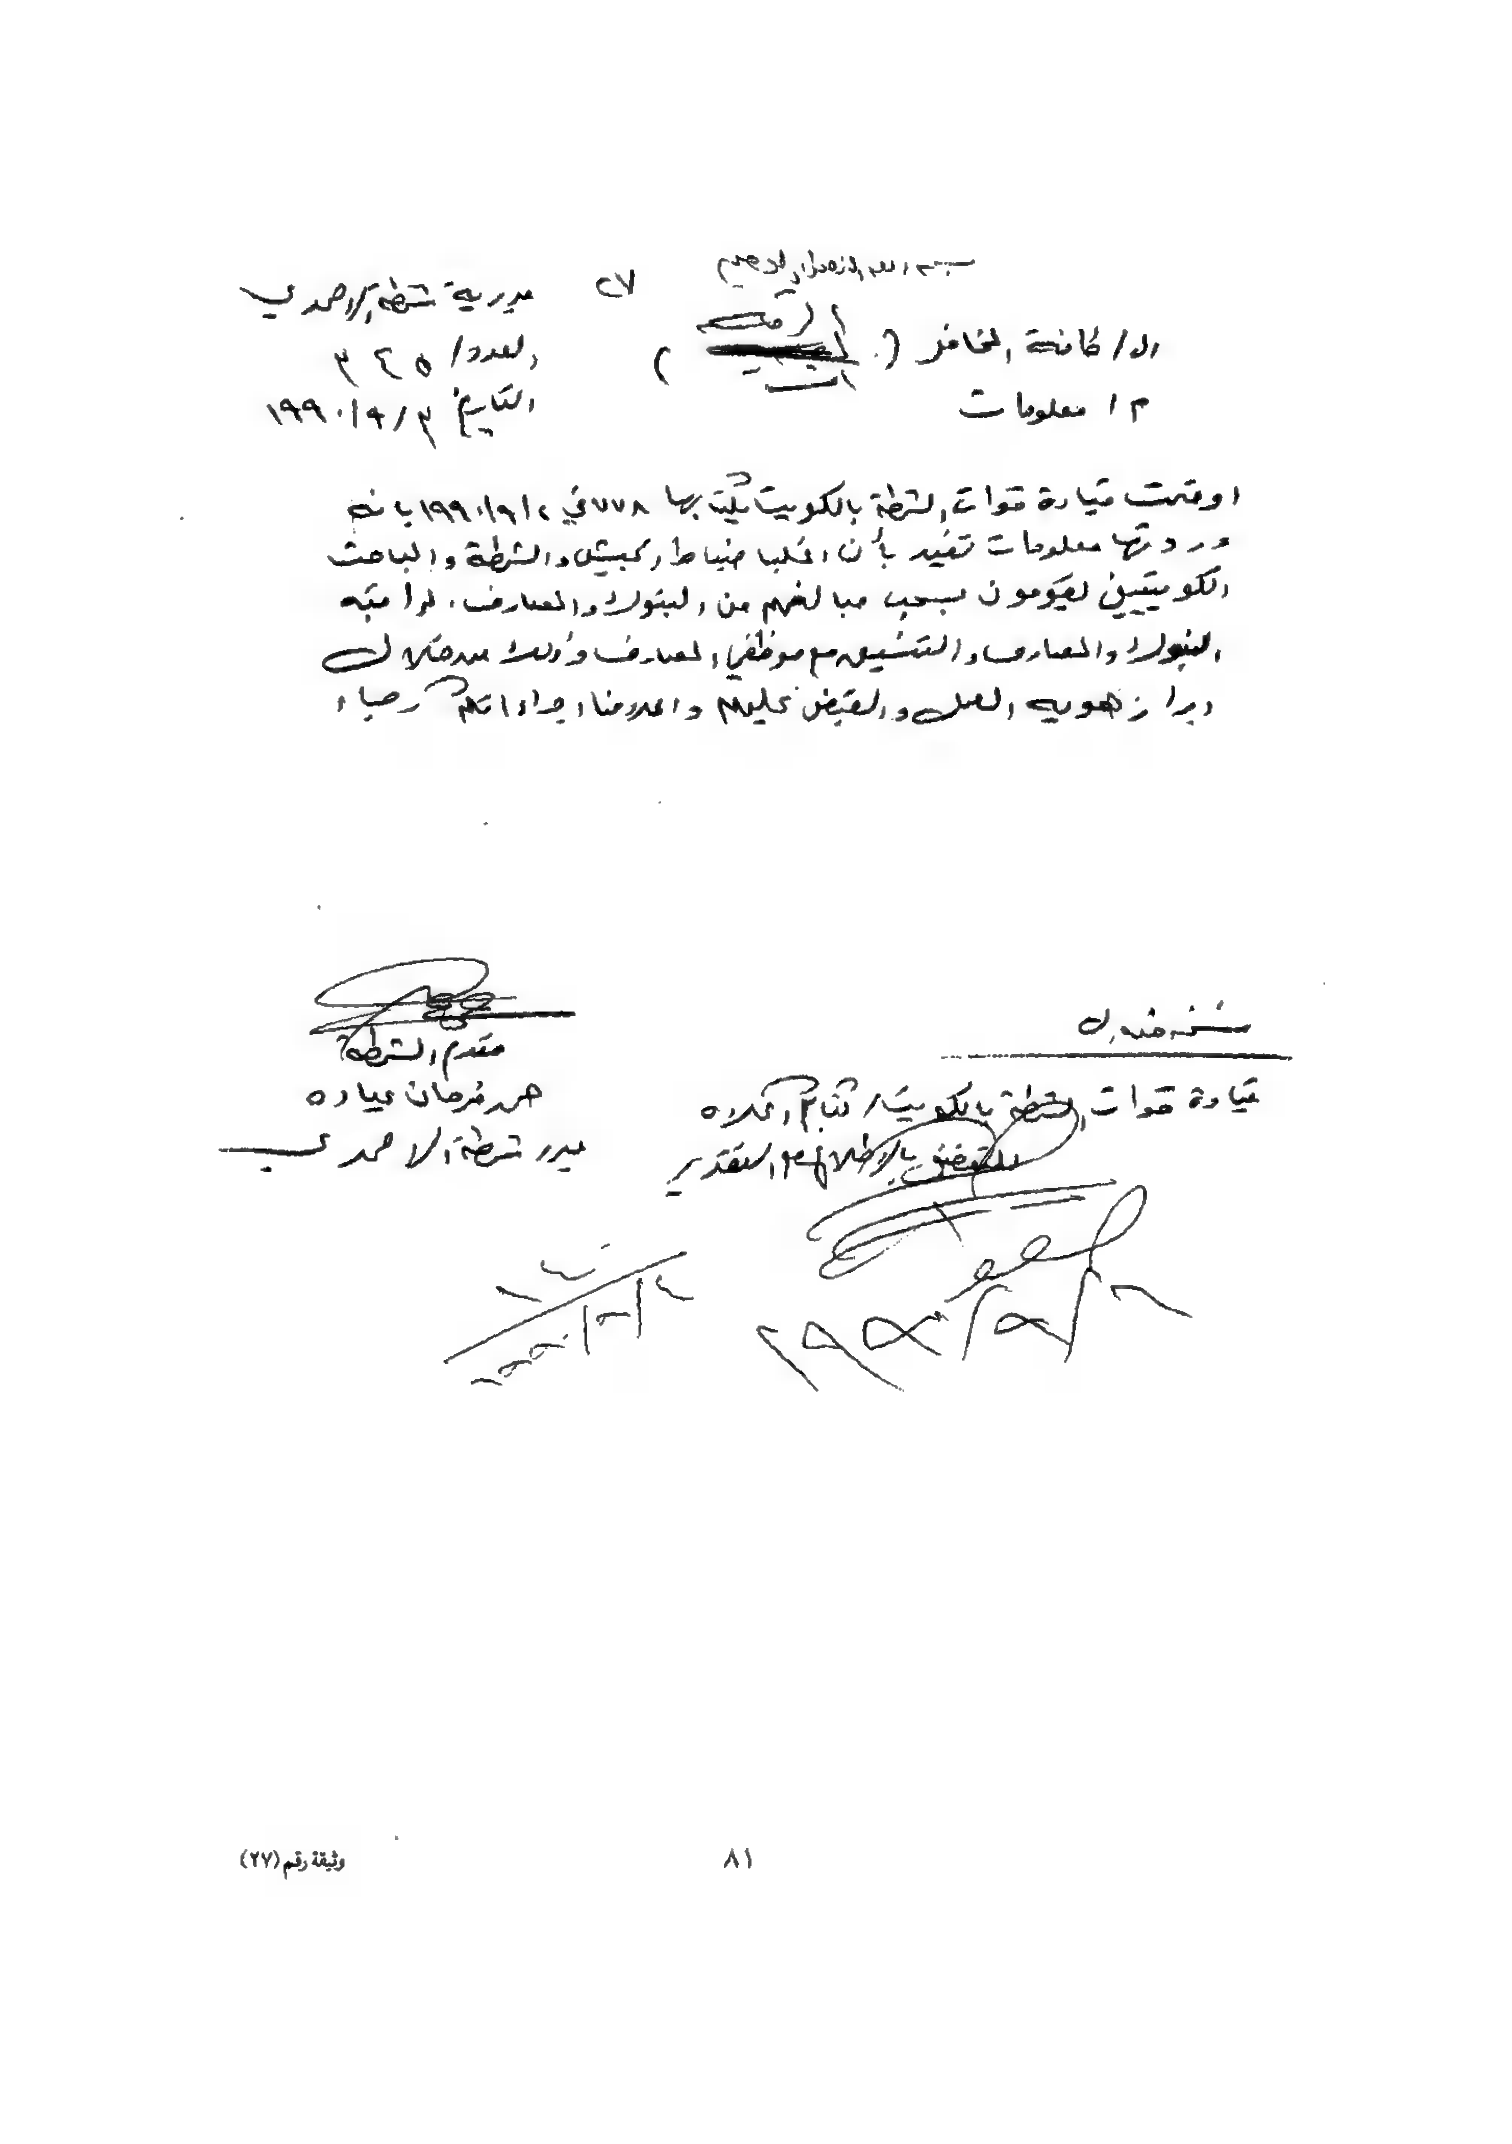 بسم الله الرحمن الرحيم
٢٧
مديرية شرطة الاحمدي
العدد / ٣٤٥
التاريخ ٣ / ٩ / ١٩٩٠
الى / كافة المخافر ( الرقة )
م / معلومات
اوضحت قيادة قوات الشرطة بالكويت بكتابها ٧٧٨ في ٢ / ٩ / ١٩٩٠ بانه
وردتها معلومات تفيد بأن اغلب ضباط الجيش والشرطة والمباحث
الكويتيين يقومون بسحب مبالغهم من البنوك والمصارف . لمراقبة
البنوك والمصارف والتنسيق مع موظفي المصارف وذلك من خلال
ابراز هوية العمل والقبض عليهم واعلامنا اجراءاتكم رجاء
مقدم الشرطة
حمد فرحان عياده
مدير شرطة الاحمدي
نسخه منه الى
قيادة قوات الشرطة بالكويت / كتابكم اعلاه
للتفضل بالاطلاع مع التقدير
٢ / ٩ / ١٩٩٠
٨١
وثيقة رقم (٢٧)